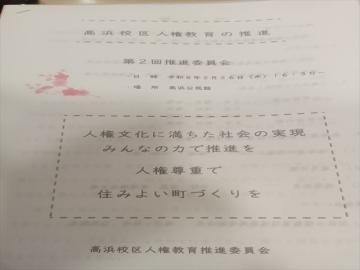 高浜校区人権教育の推進
第2回推進委員会
日時 令和6年2月26日(月)16:30~
場所 高浜公民館
人権文化に満ちた社会の実現
みんなの力で推進を
人権尊重で
住みよい町づくりを
高浜校区人権教育推進委員会